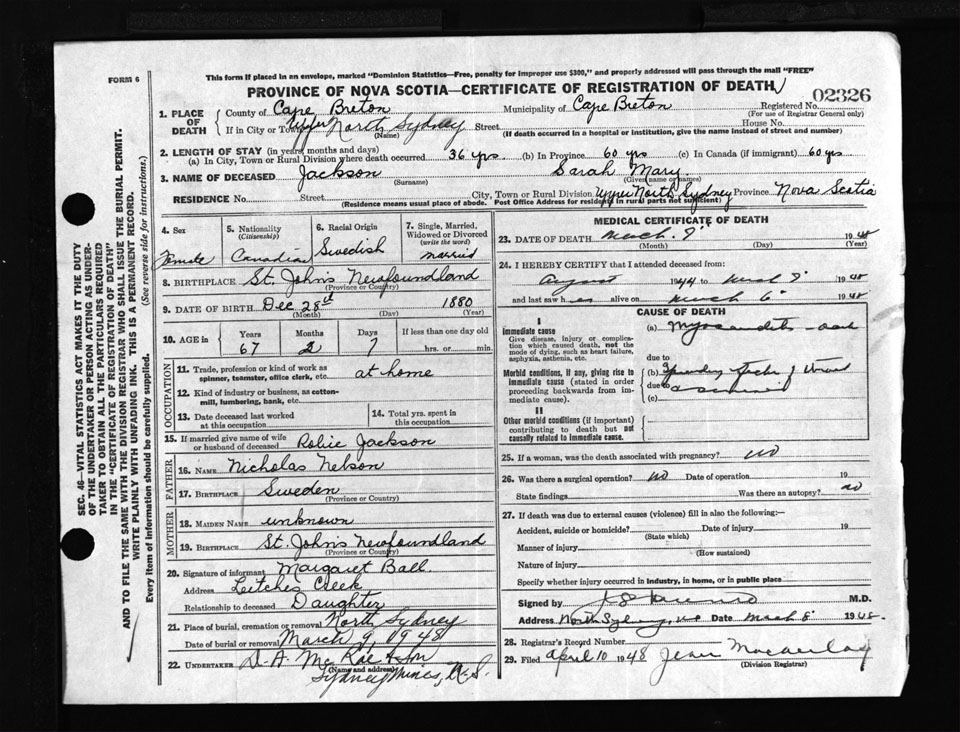 FORM 6
This form if placed in an envelope, marked "Dominion Statistics—Free, penalty for improper use $300," and properly addressed will pass through the mail "FREE"
PROVINCE OF NOVA SCOTIA—CERTIFICATE OF REGISTRATION OF DEATH
02326
1. PLACE OF DEATH
County of Cape Breton Municipality of Cape Breton Registered No.
(For use of Registrar General only)
If in City or Town Upper North Sydney Street House No.
(Name) (If death occurred in a hospital or institution, give the name instead of street and number)
2. LENGTH OF STAY (in years, months and days)
(a) In City, Town or Rural Division where death occurred 36 yrs (b) In Province 60 yrs (c) In Canada (if immigrant) 60 yrs
3. NAME OF DECEASED Jackson Sarah Mary
(Surname) (Given name or names)
RESIDENCE No. Street City, Town or Rural Division Upper North Sydney Province Nova Scotia
(Residence means usual place of abode. Post Office Address for residents in rural parts not sufficient)
4. Sex Female
5. Nationality (Citizenship) Canadian
6. Racial Origin Swedish
7. Single, Married, Widowed or Divorced (write the word) married
8. BIRTHPLACE St. John's Newfoundland
(Province or Country)
9. DATE OF BIRTH Dec 28th 1880
(Month) (Day) (Year)
10. AGE in Years 67 Months 2 Days 7 If less than one day old
hrs. or min.
OCCUPATION
11. Trade, profession or kind of work as spinner, teamster, office clerk, etc. at home
12. Kind of industry or business, as cotton-mill, lumbering, bank, etc.
13. Date deceased last worked at this occupation
14. Total yrs. spent in this occupation
15. If married give name of wife or husband of deceased Robie Jackson
FATHER
16. NAME Nicholas Nelson
17. BIRTHPLACE Sweden
(Province or Country)
MOTHER
18. MAIDEN NAME unknown
19. BIRTHPLACE St. John's Newfoundland
(Province or Country)
20. Signature of informant Margaret Ball
Address Leitches Creek
Relationship to deceased Daughter
21. Place of burial, cremation or removal North Sydney
Date of burial or removal March 9, 1948
22. UNDERTAKER D. A. McRae &
(Name and address)
Sydney Mines, N.S.
MEDICAL CERTIFICATE OF DEATH
23. DATE OF DEATH March 1948
(Month) (Day) (Year)
24. I HEREBY CERTIFY that I attended deceased from:
August 1944 to March 1948
and last saw her alive on March 6 1948
CAUSE OF DEATH
I
Immediate cause
Give disease, injury or complication which caused death, not the mode of dying, such as heart failure, asphyxia, asthenia, etc.
(a) Myocarditis
due to
Morbid conditions, if any, giving rise to immediate cause (stated in order proceeding backwards from immediate cause).
(b)
due to
(c)
II
Other morbid conditions (if important) contributing to death but not causally related to immediate cause.
25. If a woman, was the death associated with pregnancy? no
26. Was there a surgical operation? no Date of operation 19
State findings Was there an autopsy? no
27. If death was due to external causes (violence) fill in also the following:—
Accident, suicide or homicide? Date of injury 19
(State which)
Manner of injury
(How sustained)
Nature of injury
Specify whether injury occurred in industry, in home, or in public place
Signed by M.D.
Address North Sydney, N.S. Date March 8 1948.
28. Registrar's Record Number
29. Filed April 10 1948 Jean Macaulay
(Division Registrar)
SEC. 46—VITAL STATISTICS ACT MAKES IT THE DUTY
OF THE UNDERTAKER OR PERSON ACTING AS UNDER-
TAKER TO OBTAIN ALL THE PARTICULARS REQUIRED
IN THE "CERTIFICATE OF REGISTRATION OF DEATH"
AND TO FILE THE SAME WITH THE DIVISION REGISTRAR WHO SHALL ISSUE THE BURIAL PERMIT.
WRITE PLAINLY WITH UNFADING INK. THIS IS A PERMANENT RECORD.
Every item of information should be carefully supplied. (See reverse side for instructions.)